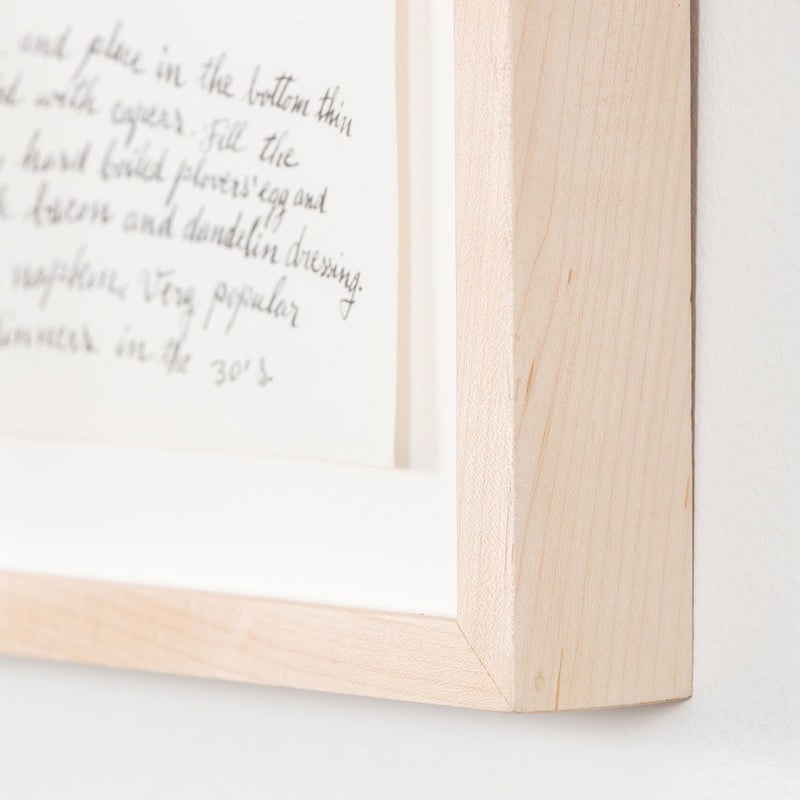 and place in the bottom thin
with capers. Fill the
hard boiled plovers' egg and
bacon and dandelin dressing.
napkin. Very popular
dinners in the 30's